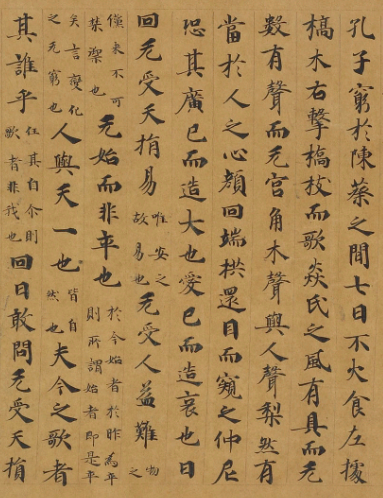 孔子窮於陳蔡之間七日不火食左據
槁木右擊槁枝而歌焱氏之風有具而无
數有聲而无宮角木聲與人聲梨然有
當於人之心顏回端拱還目而窺之仲尼
恐其廣己而造大也愛己而造哀也曰
回无受天損易唯安之故易也无受人益難物之
儻來不可禁禦也无始而非卒也於今始者於昨為卒則所謂始者即是卒
矣言變化之无窮也人與天一也皆自然也夫今之歌者
其誰乎任其自尒則歌者非我也回曰敢問无受天損